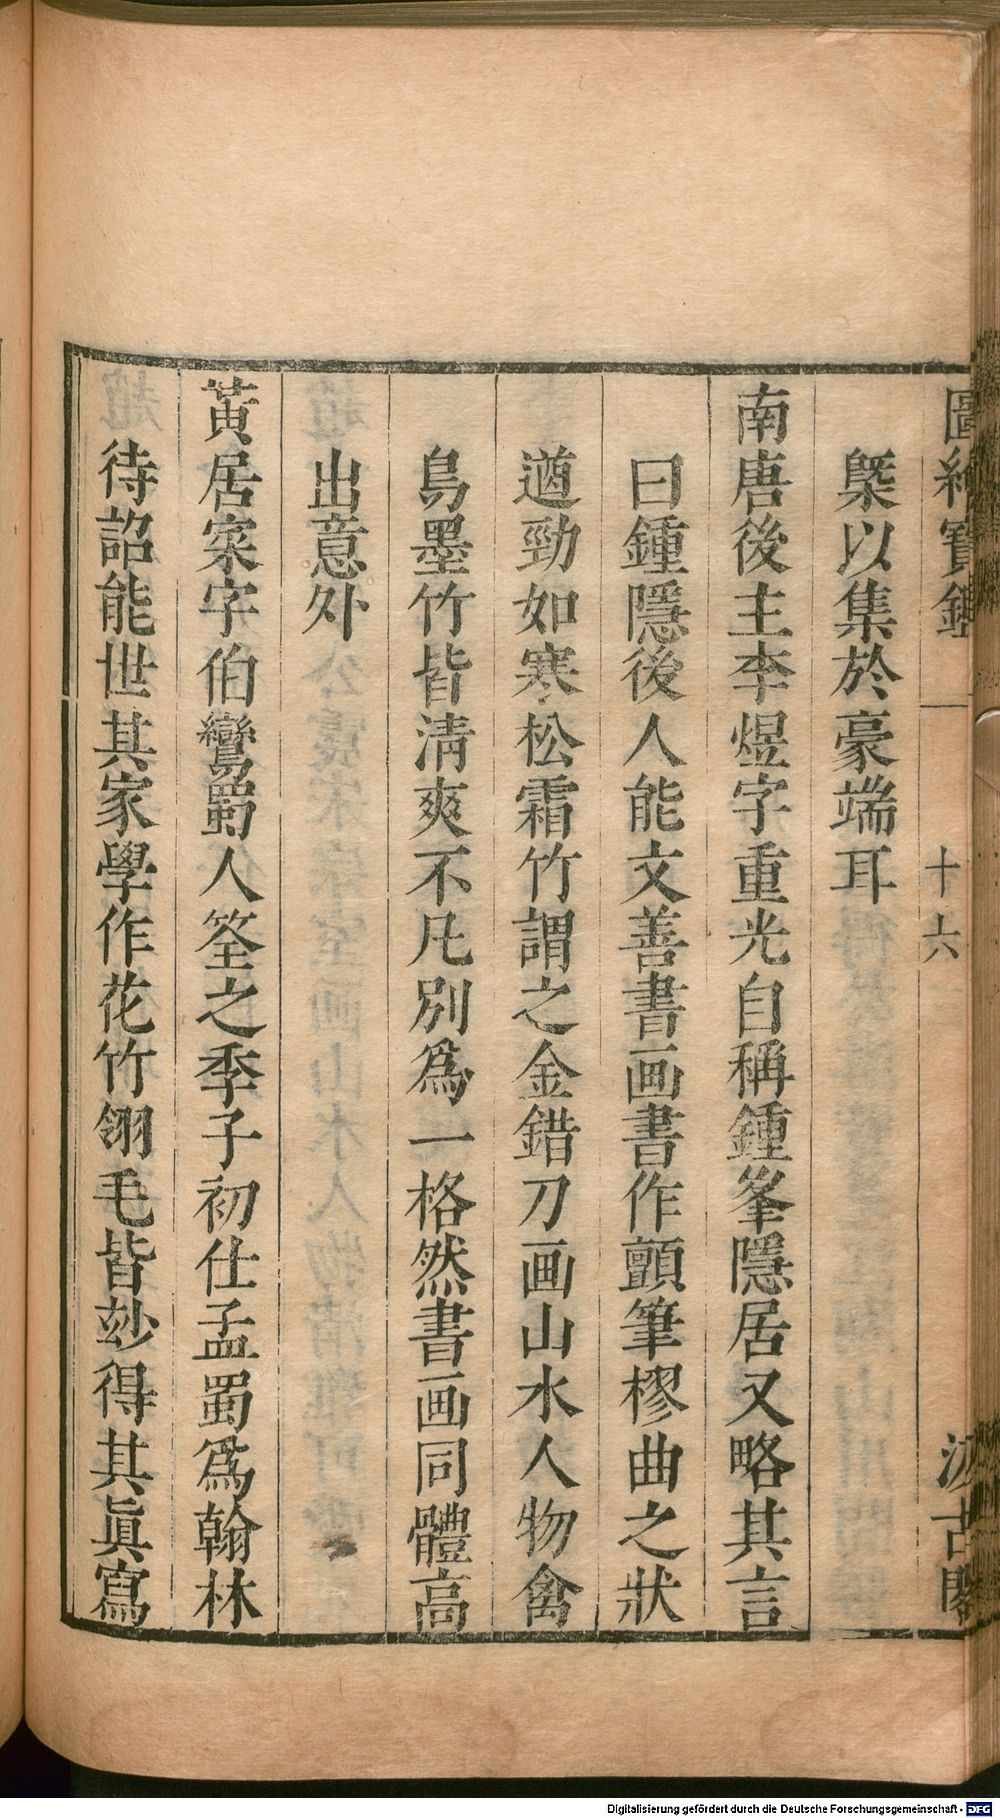 圖繪寶鑑
十六
汲古閣
槩以集於豪端耳
南唐後主李煜字重光自稱鍾峯隱居又略其言
曰鍾隱後人能文善書画書作顫筆樛曲之狀
遒勁如寒松霜竹謂之金錯刀画山水人物禽
鳥墨竹皆淸爽不凡別爲一格然書画同體高
出意外
黃居寀字伯鸞蜀人筌之季子初仕孟蜀爲翰林
待詔能世其家學作花竹翎毛皆玅得其眞寫
Digitalisierung gefördert durch die Deutsche Forschungsgemeinschaft - DFG